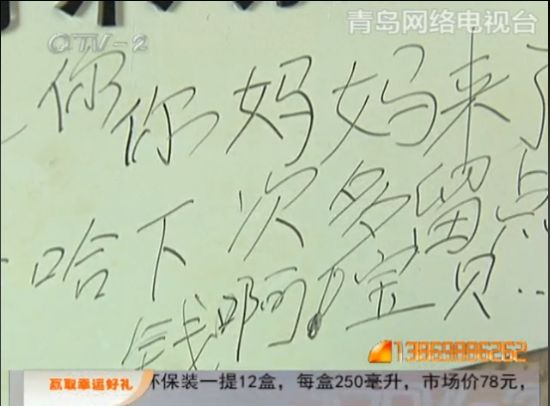 青岛网络电视台
QTV-2
你你妈妈来了
哈下次多留点
钱啊,宝贝..
13969886262
赢取幸运好礼 环保装一提12盒，每盒250毫升，市场价78元，